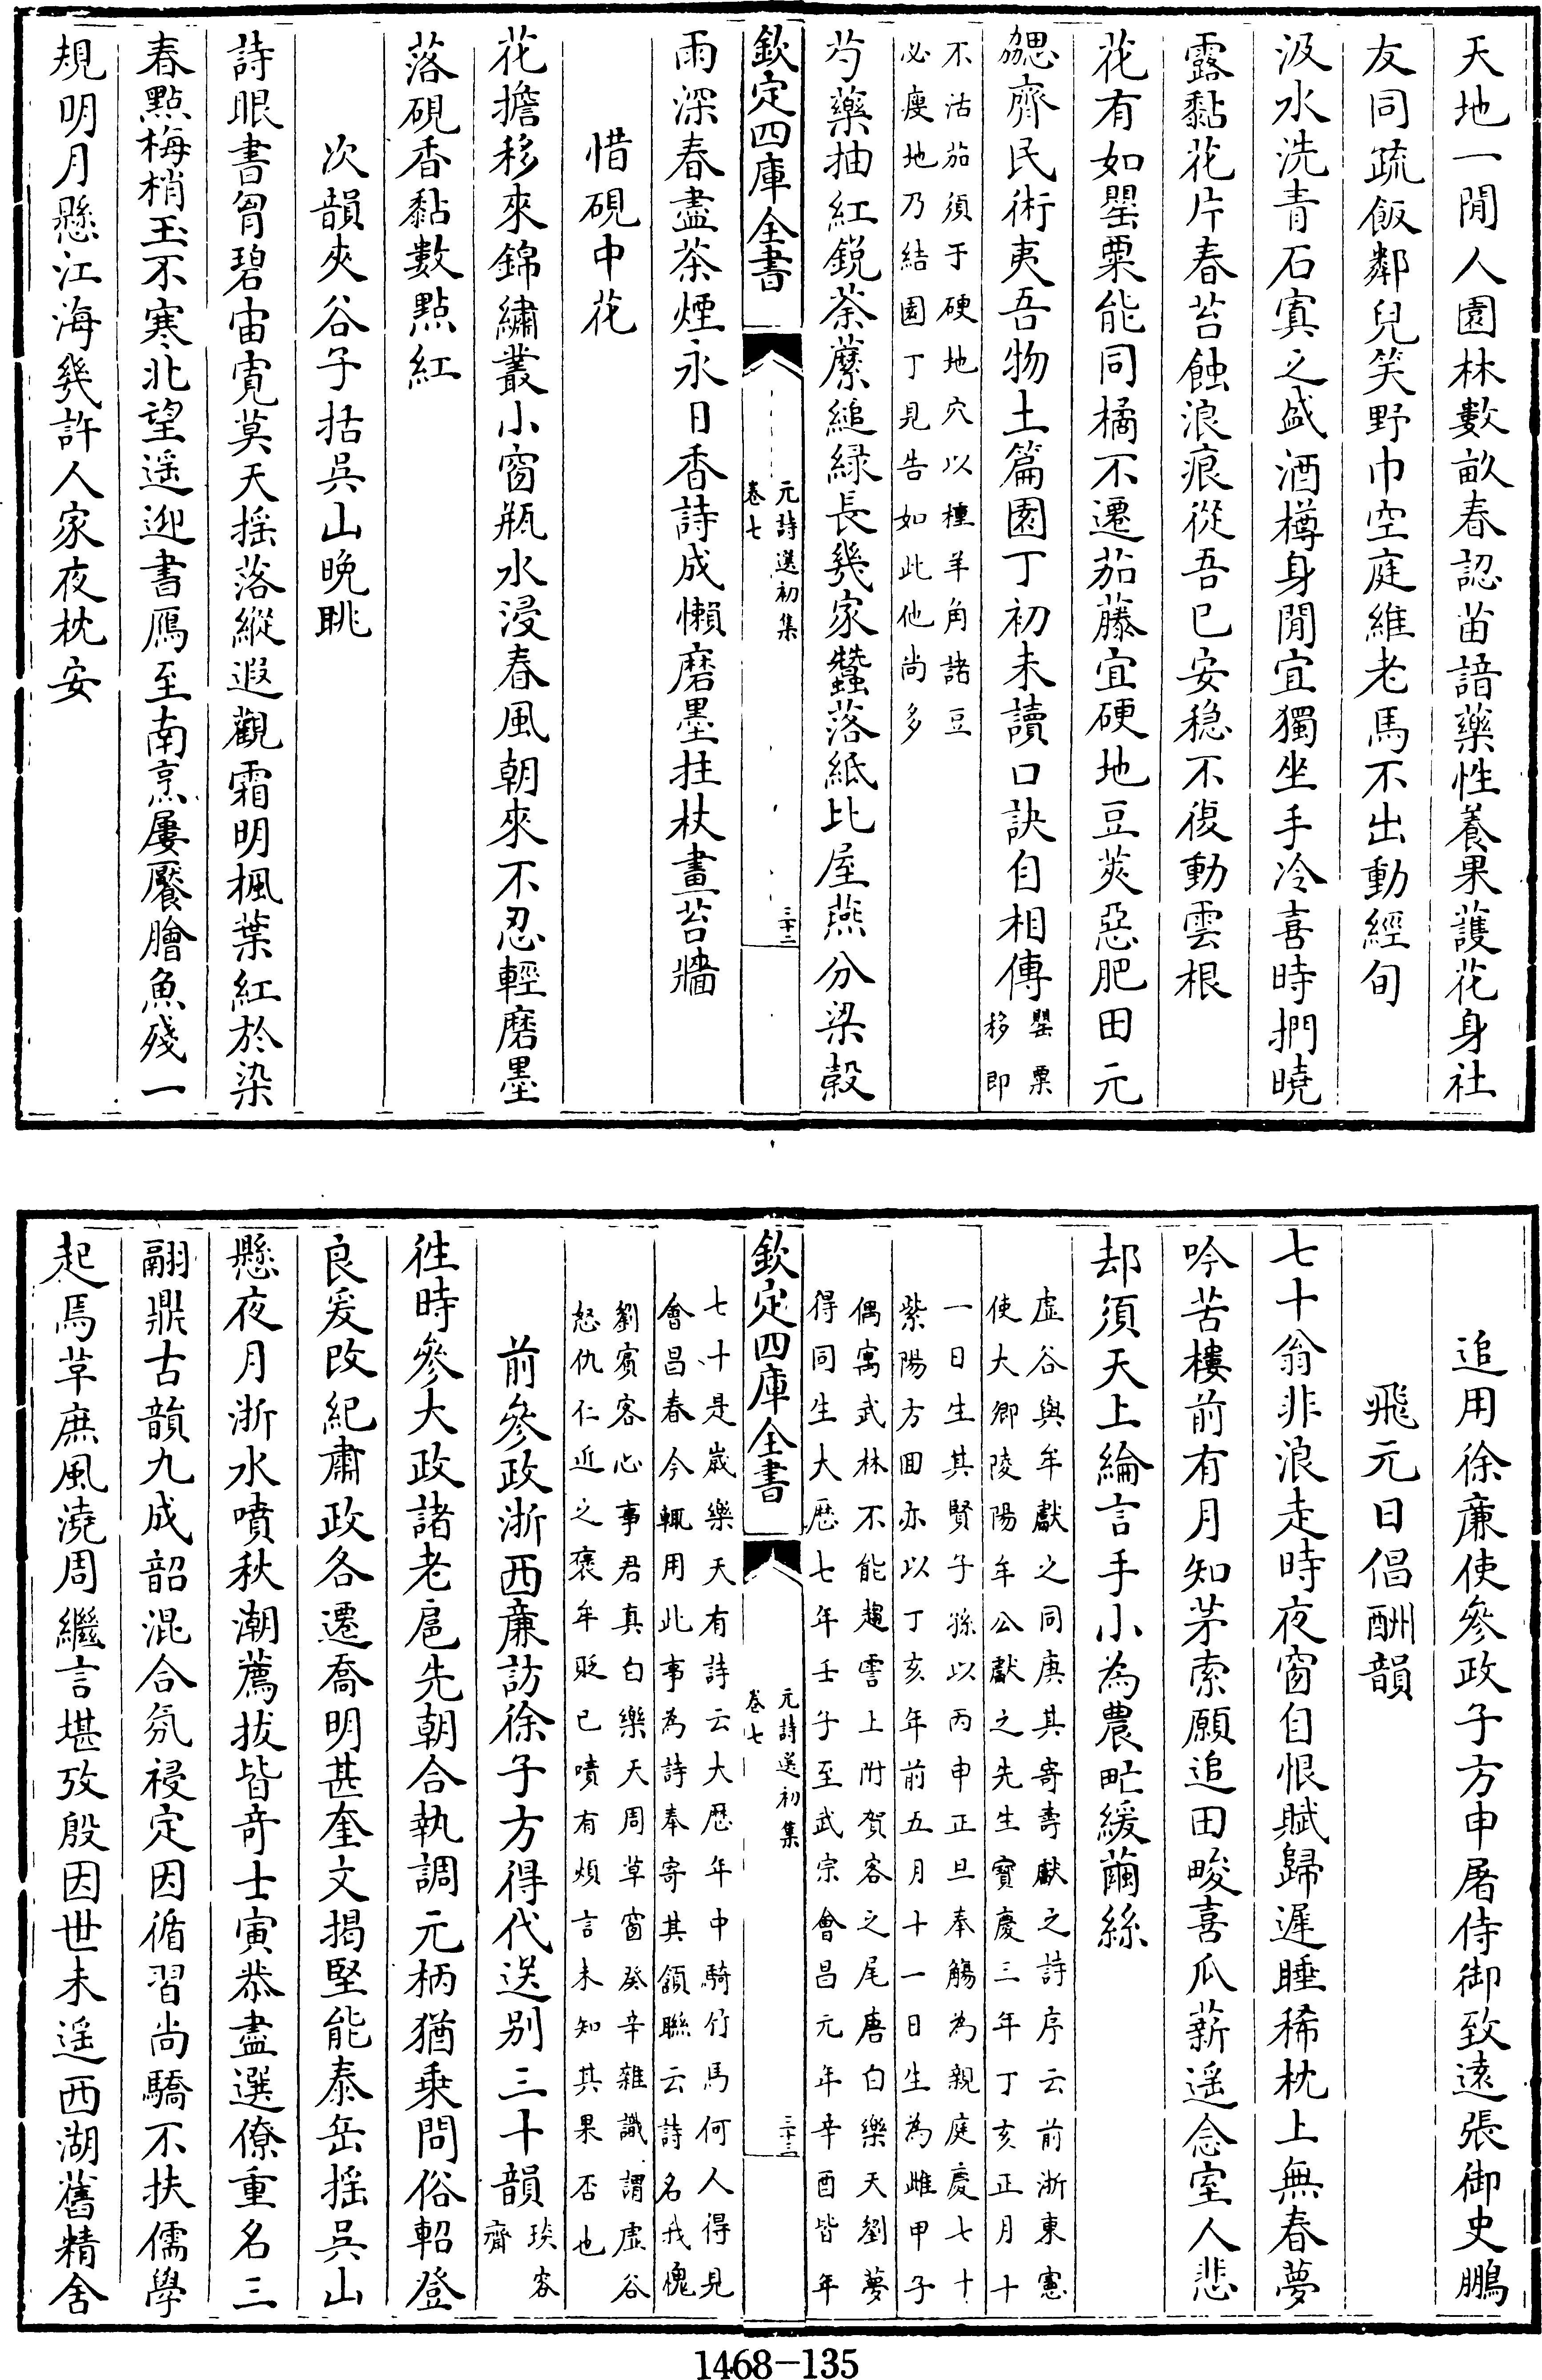 天地一閒人園林數畝春認苗諳藥性養果䕶花身社
友同疏飯鄰兒笑野巾空庭維老馬不出動經旬
汲水洗青石寘之盛酒樽身閒宜獨坐手冷喜時捫曉
露黏花片春苔蝕浪痕從吾已安穩不復動雲根
花有如罌粟能同橘不遷茄藤宜硬地豆莢惡肥田元
勰齊民術夷吾物土篇園丁初未讀口訣自相傳罌粟
移即
不沽茄須于硬地穴以種羊角諸豆
必瘦地乃結園丁見告如此他尚多
芍藥抽紅鋭荼蘼縋緑長幾家蠶落紙比屋燕分梁榖
欽定四庫全書
元詩選初集
卷七
三十二
雨深春盡茶煙永日香詩成懶磨墨拄杖畫苔牆
惜硯中花
花擔移來錦繡叢小窗瓶水浸春風朝來不忍輕磨墨
落硯香黏數點紅
次韻夾谷子括吳山晚眺
詩眼書胷碧宙寛莫天揺落縱遐觀霜明楓葉紅於染
春點梅梢玉不寒北望遥迎書鴈至南烹屢饜膾魚殘一
規明月懸江海幾許人家夜枕安
追用徐亷使參政子方申屠侍御致遠張御史鵬
飛元日倡酬韻
七十翁非浪走時夜窗自恨賦歸遲睡稀枕上無春夢
吟苦樓前有月知茅索願追田畯喜瓜薪遥念室人悲
却須天上綸言手小為農甿緩繭絲
虚谷與牟獻之同庚其寄壽獻之詩序云前浙東憲
使大卿陵陽牟公獻之先生寳慶三年丁亥正月十
一日生其賢子孫以丙申正旦奉觴為親庭慶七十
紫陽方囬亦以丁亥年前五月十一日生為雌甲子
偶寓武林不能趨霅上附賀客之尾唐白樂天劉夢
得同生大厯七年壬子至武宗會昌元年辛酉皆年
欽定四庫全書
元詩選初集
卷七
三十三
七十是歳樂天有詩云大厯年中騎竹馬何人得見
會昌春今輒用此事為詩奉寄其頷聯云詩名我愧
劉賓客心事君真白樂天周草窗癸辛雜識謂虚谷
怒仇仁近之褒牟貶已嘖有煩言未知其果否也
前參政浙西亷訪徐子方得代送别三十韻琰容
齋
往時參大政諸老扈先朝合執調元柄猶乗問俗軺登
良爰改紀肅政各遷喬明甚奎文揭堅能泰岳揺吳山
懸夜月浙水噴秋潮薦拔皆竒士寅恭盡選僚重名三
翮鼎古韻九成韶混合氛祲定因循習尚驕不扶儒學
起焉草庶風澆周繼言堪攷殷因世未遥西湖舊精舍
1468-135